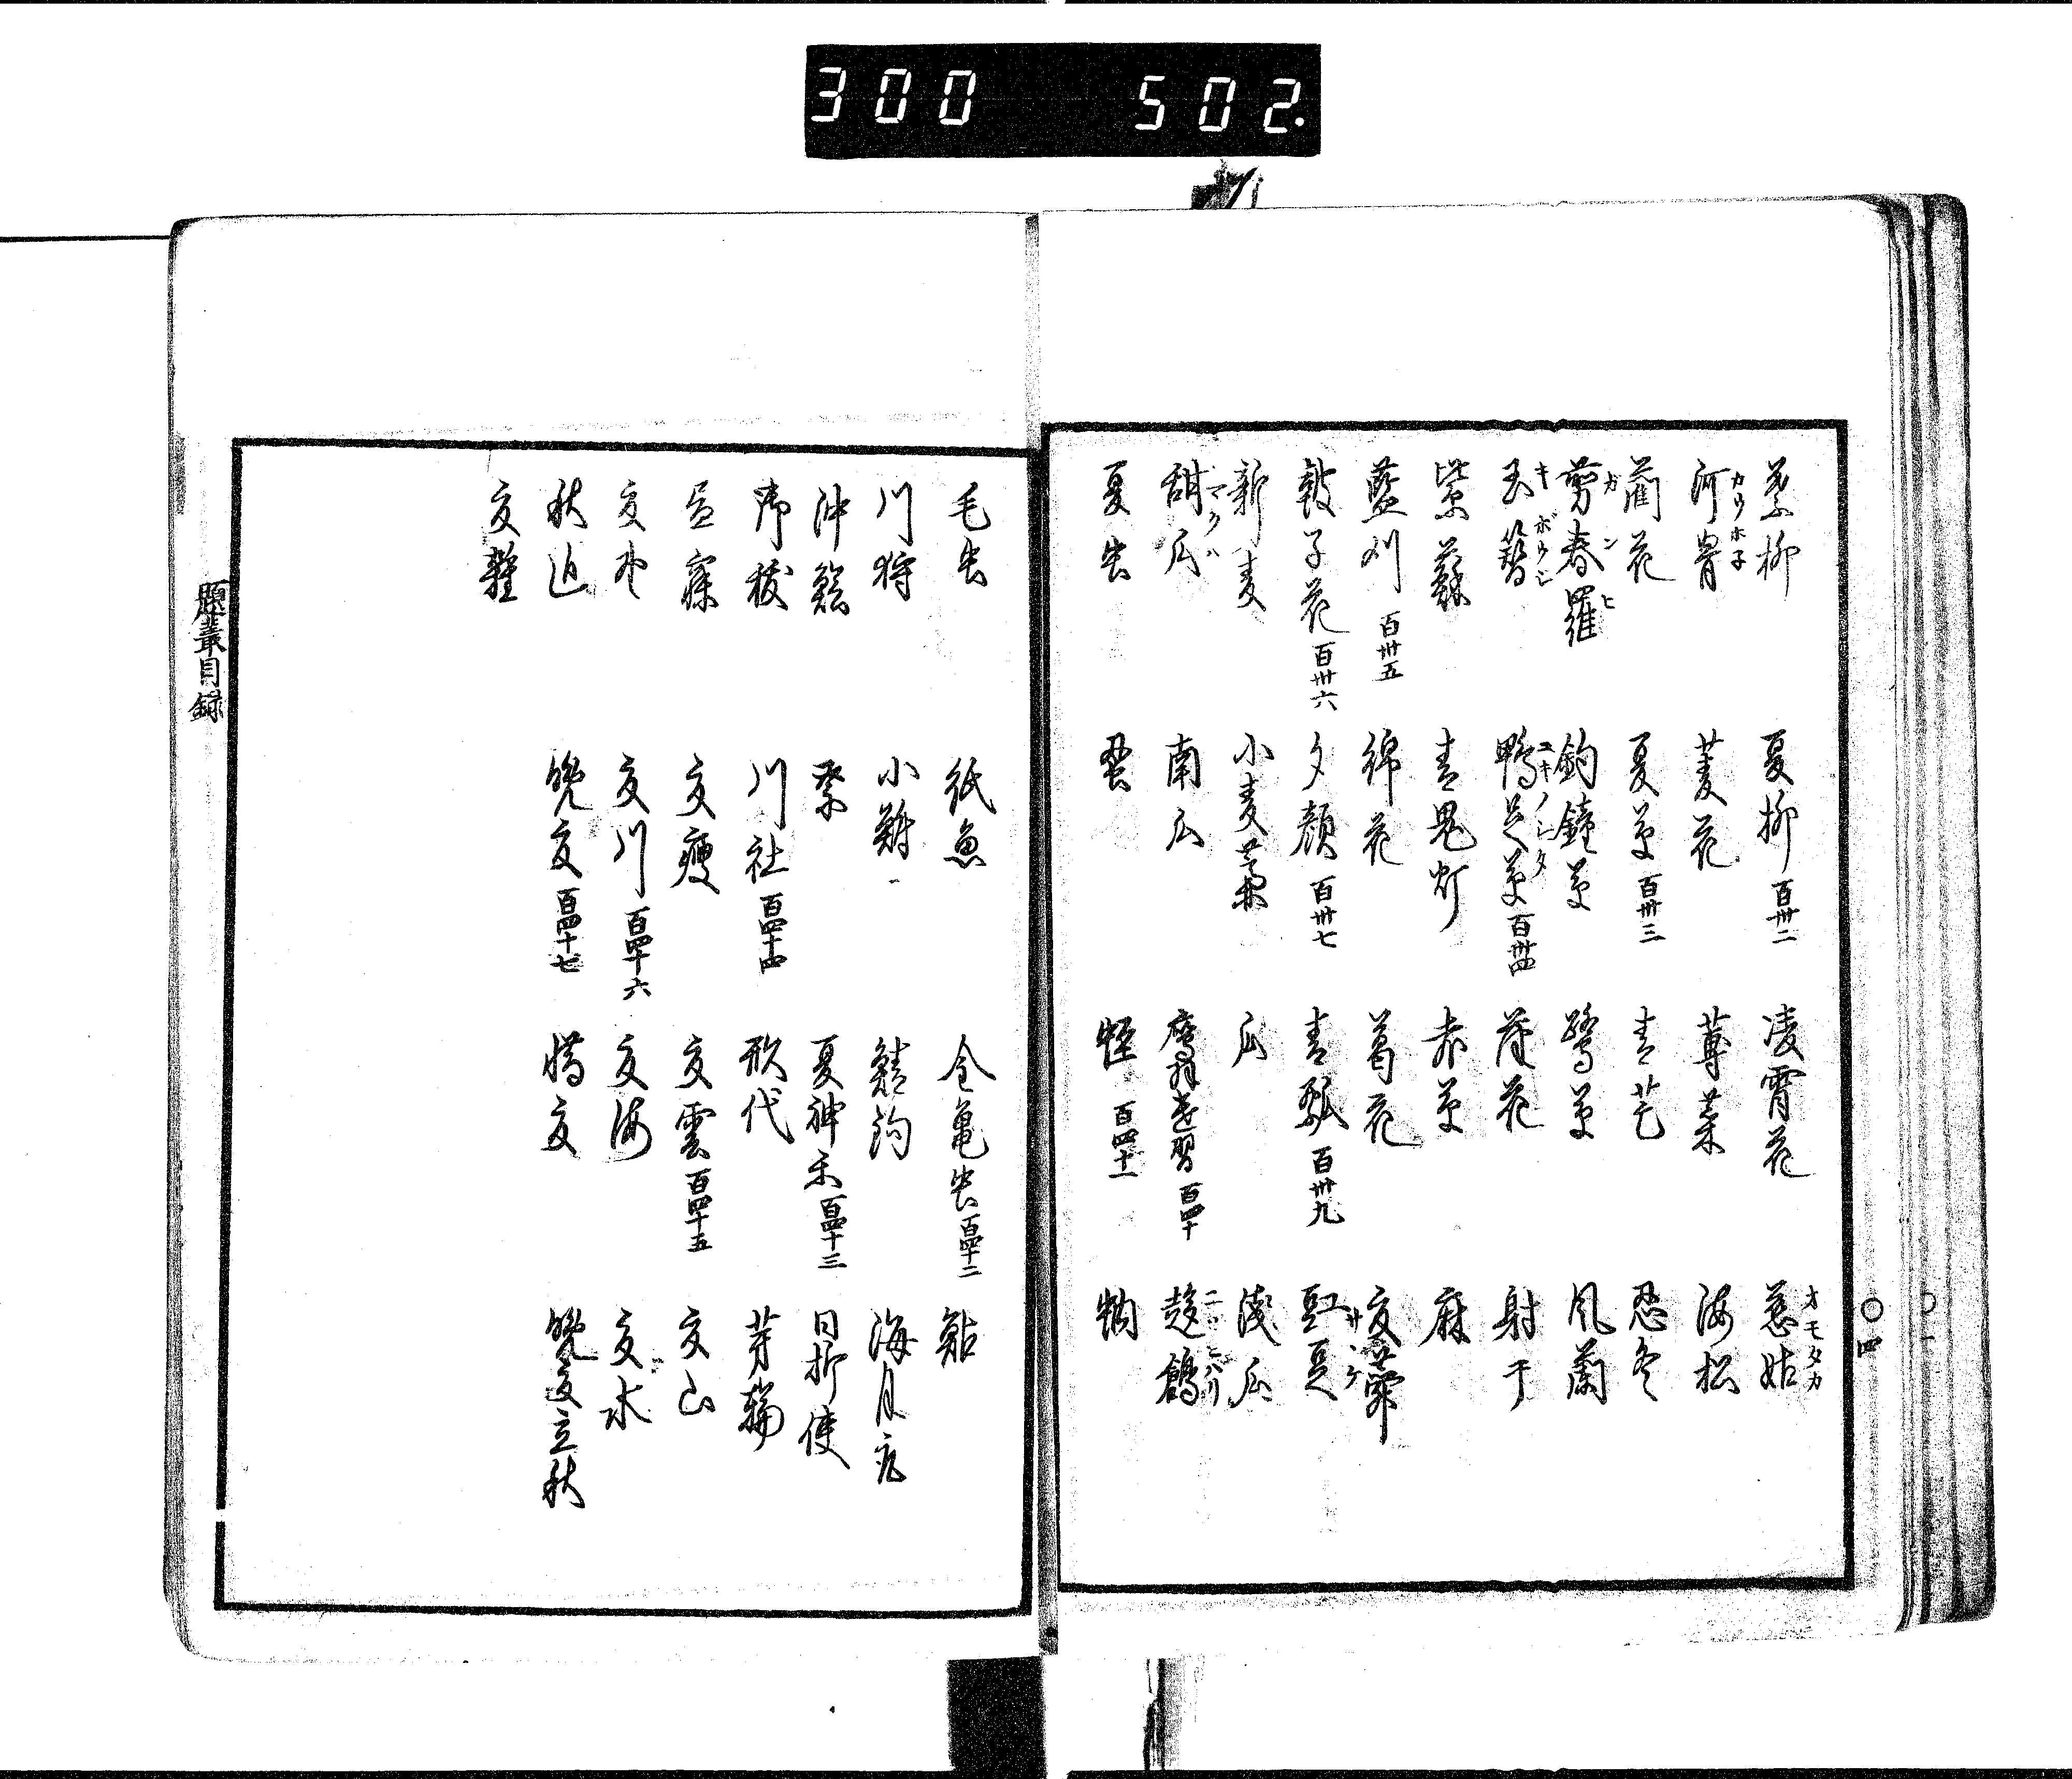 300 502.
葉柳 夏柳 百卅二 凌霄花 慈姑 オモタカ
河骨 カウホ子 菱花 蓴菜 海松
藺花 夏草 百卅三 青芒 忍冬
剪春羅 ガンヒ 釣鐘草 鷺草 風蘭
玉簪 キボウシ 鴨足草 ユキノシタ 百卅四 蓮花 射干
紫蘇 青鬼灯 赤草 麻
藍刈 百卅五 綿花 葛花 夏蕣
皷子花 百卅六 夕顔 百卅七 青瓢 百卅九 豇豆
新麦 小麦 瓜 浅瓜
甜瓜 マクハ 南瓜 鷹羽遣習 百四十 鶴
夏虫 蚕 百四十一
毛虫 紙魚 金亀虫 百四十二 鮎
川狩 小鯵 鯖釣 海月
沖鱠 祭 夏神楽 百四十三 日折使
御祓 川社 百四十四 形代 茅輪
昼寐 夏痩 夏雲 百四十五 夏山
夏野 夏川 百四十六 夏海 夏水
秋近 晩夏 百四十七 惜夏 晩夏立秋
夏雑
題叢目録
〇四
〇一